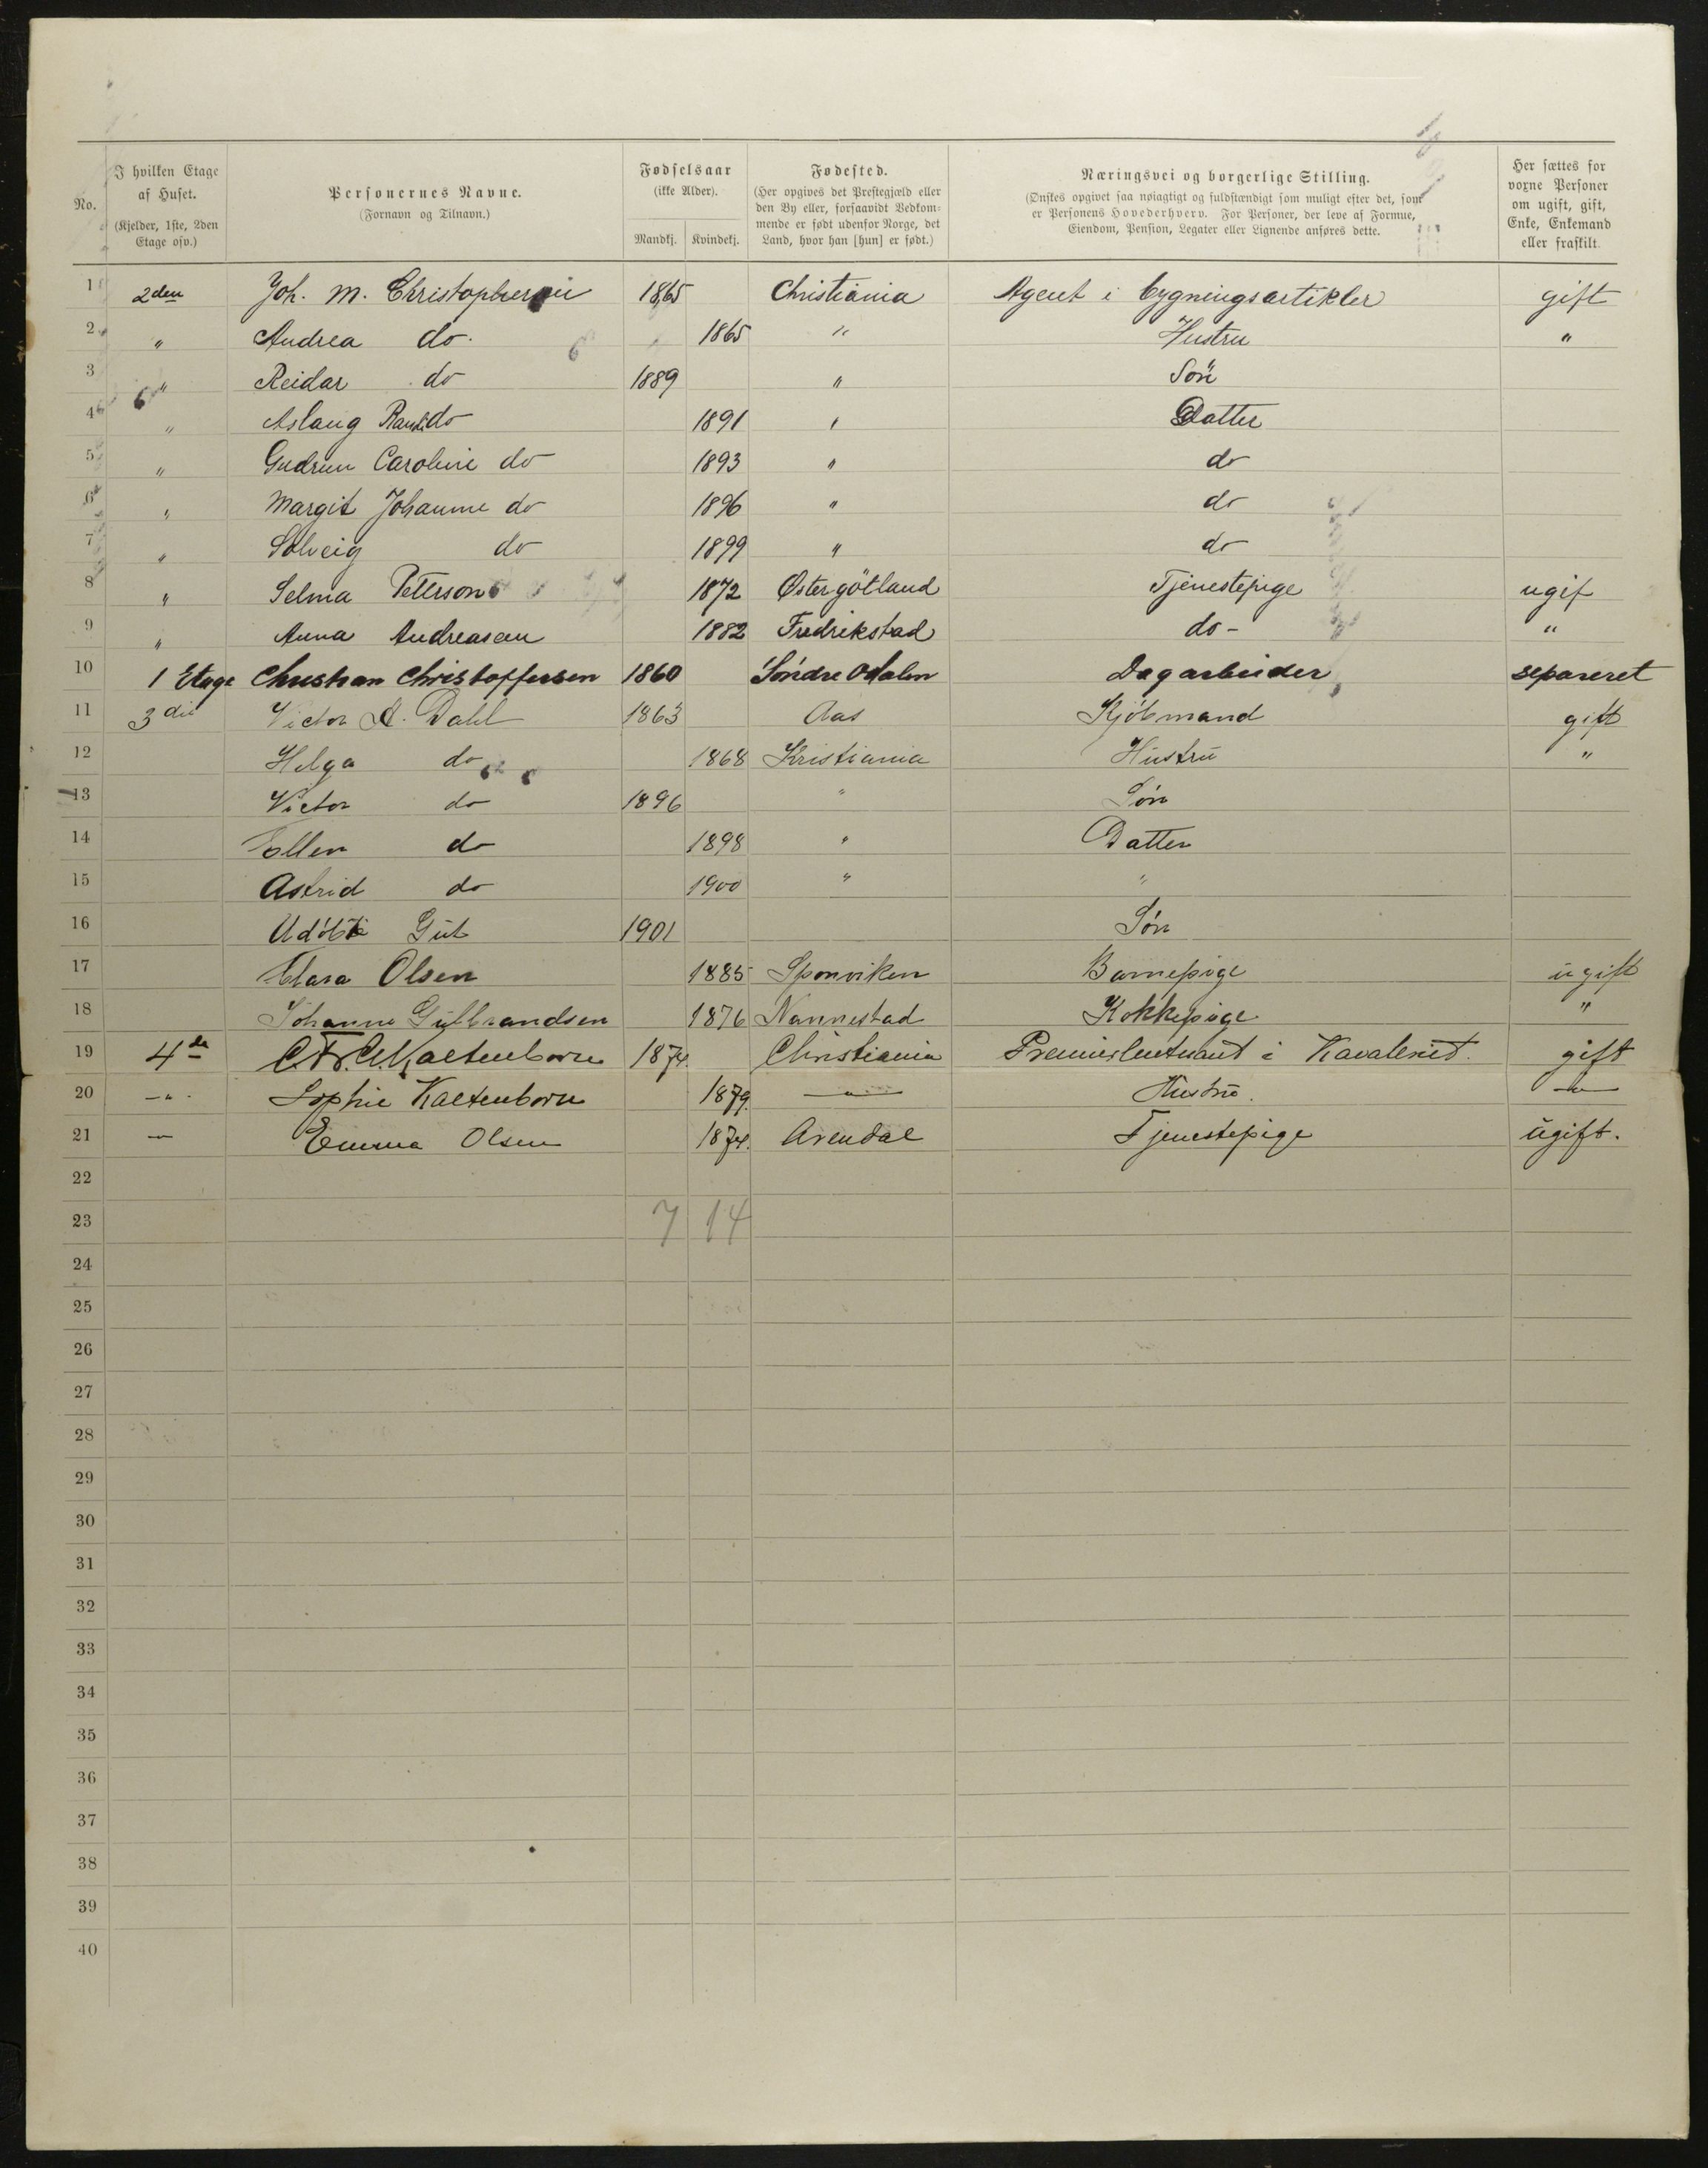 No.
I hvilken Etage af Huset. (Kjelder, 1ste, 2den Etage osv.)
Personernes Navne. (Fornavn og Tilnavn.)
Fødselsaar (ikke Alder). Mandkj. Kvindekj.
Fødested. (Her opgives det Prestegjæld eller den By eller, forsaavidt Vedkommende er født udenfor Norge, det Land, hvor han [hun] er født.)
Næringsvei og borgerlige Stilling. (Ønskes opgivet saa nøiagtigt og fuldstændigt som muligt efter det, som er Personens Hovederhverv. For Personer, der leve af Formue, Eiendom, Pension, Legater eller Lignende anføres dette.)
Her sættes for voxne Personer om ugift, gift, Enke, Enkemand eller fraskilt.
1 2den Joh. M. Christophersen 1865 Christiania Agent i bygningsartikler gift
2 " Andrea do. 1865 " Hustru "
3 " Reidar do 1889 " Søn
4 " Aslaug Randi do 1891 " Datter
5 " Gudrun Caroline do 1893 " do
6 " Margit Johanne do 1896 " do
7 " Solveig do 1899 " do
8 " Selma Petterson 1872 Østergötland Tjenestepige ugif
9 " Anna Andreasen 1882 Fredrikstad do - "
10 1 Etage Christian Christoffersen 1860 Søndre Odalen Dagarbeider separeret
11 3die Victor A. Dahl 1863 Aas Kjøbmand gift
12 Helga do 1868 Kristiania Hustru "
13 Victor do 1896 " Søn
14 Ellen do 1898 " Datter
15 Astrid do 1900 " "
16 Udøbt Gut 1901 Søn
17 Clara Olsen 1885 Sponviken Barnepige ugift
18 Johanne Gulbrandsen 1876 Nannestad Kokkepige "
19 4de Kaltenborn 1874. Christiania Premierlieutnant i Kavaleriet. gift
20 - " - Sophie Kaltenborn 1879. - " - Hustru. - " -
21 - " - Emma Olsen 1874. Arendal Tjenestepige ugift.
22
23 7 14
24
25
26
27
28
29
30
31
32
33
34
35
36
37
38
39
40